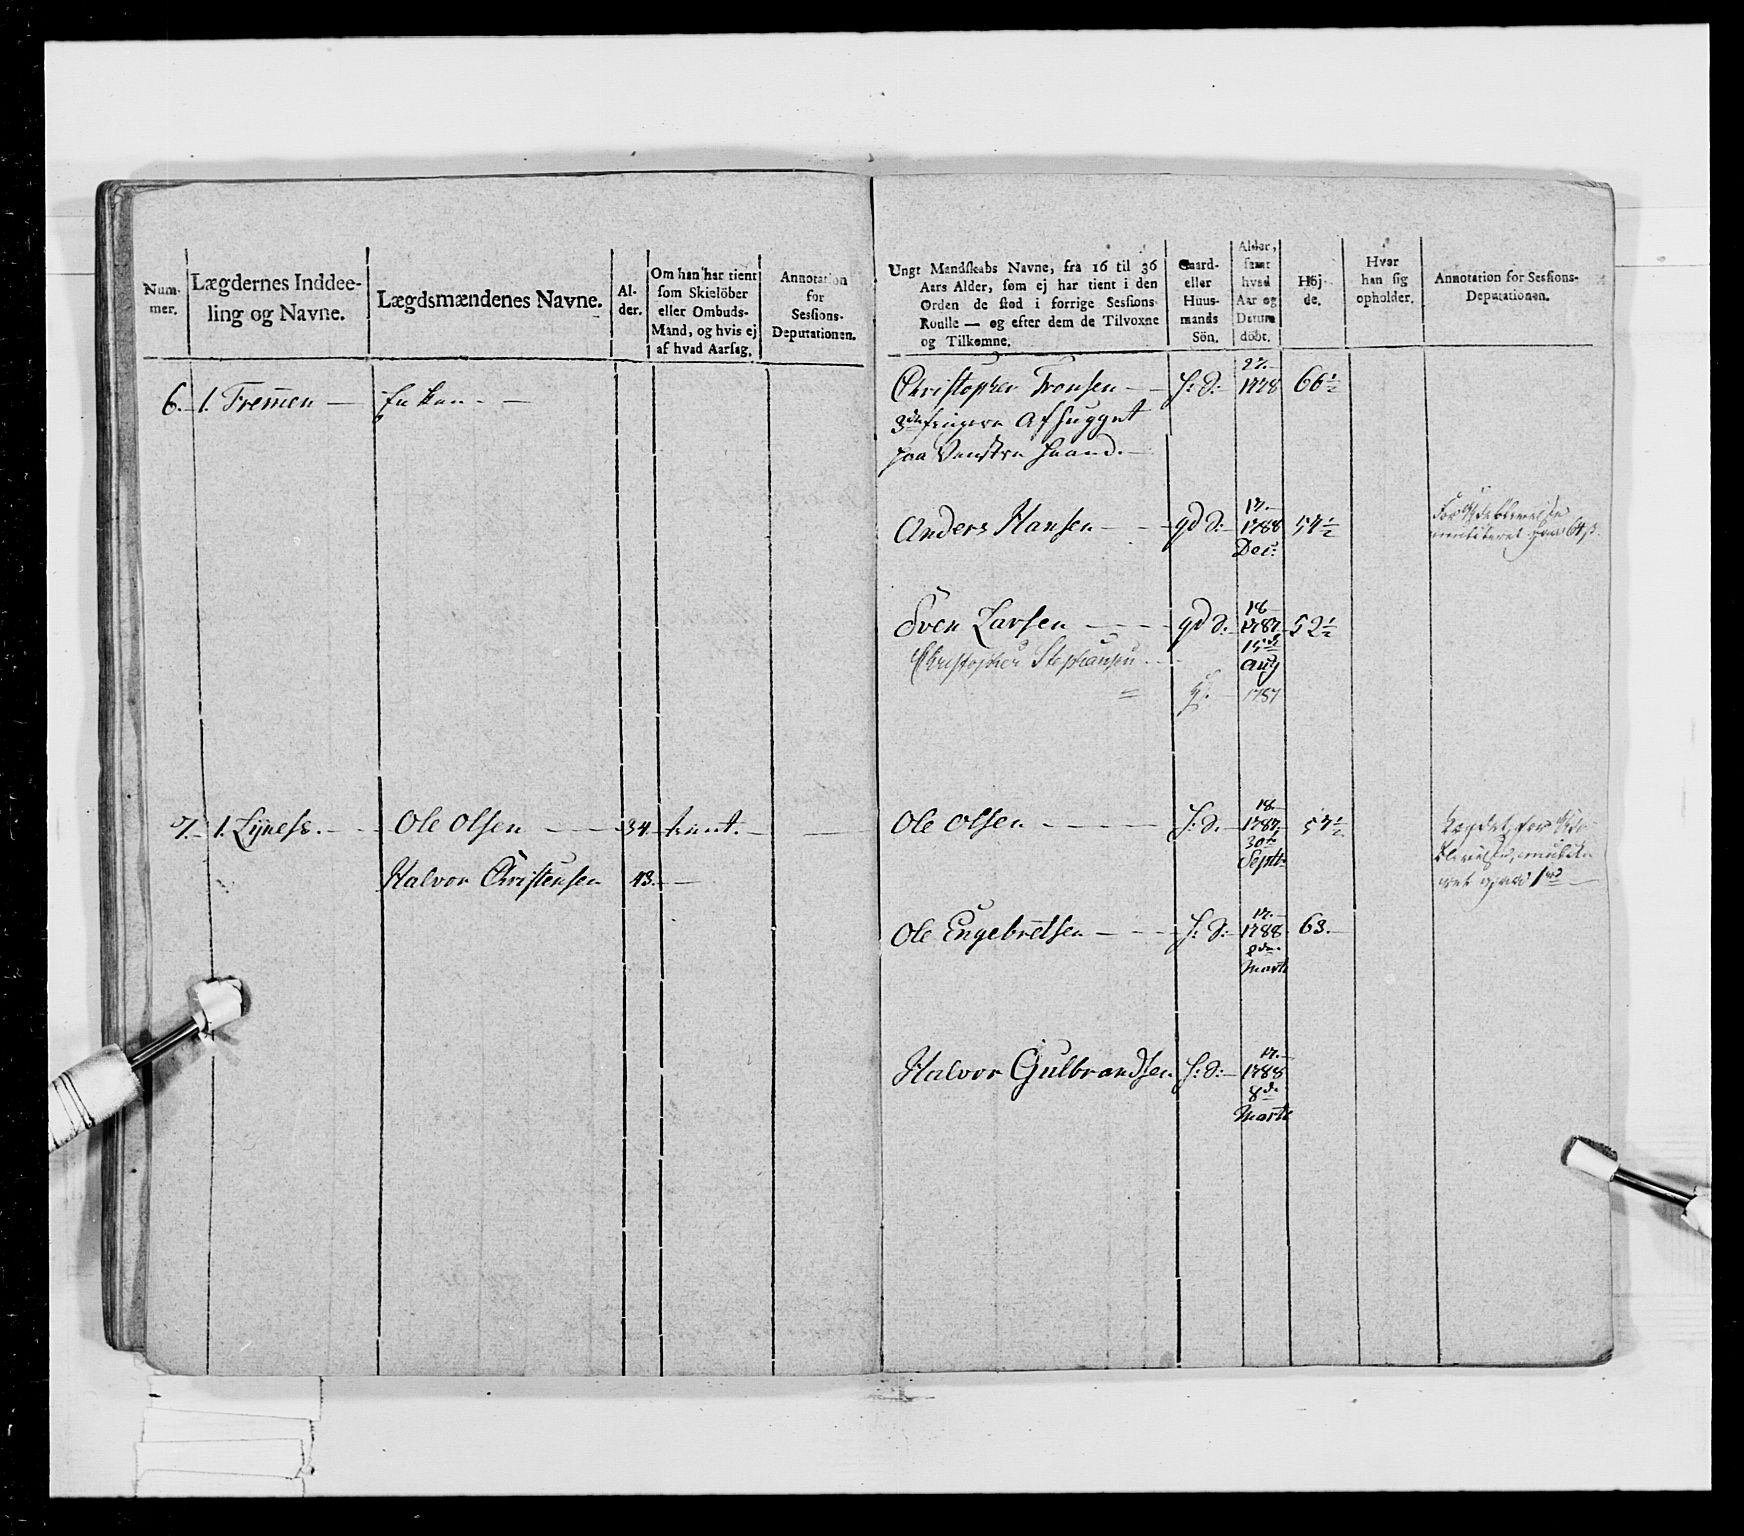 Num-
mer.
Lægdernes Inddee-
ling og Navne.
Lægdsmændenes Navne.
Al-
der.
Om han har tient
som Skielöber
eller Ombuds-
Mand, og hvis ej
af hvad Aarsag.
Annotation
for
Sessions-
Deputationen.
6. 1. Tremen — Enken —
7. 1. Lyness. — Ole Olsen — 34 — tient. —
Halvor Christensen 43. —
Ungt Mandskabs Navne, fra 16 til 36
Aars Alder, som ej har tient i den
Orden de stod i forrige Sessions-
Roulle — og efter dem de Tilvoxne
og Tilkomne.
Gaard-
eller
Huus-
mands
Sön.
Alder,
samt
hvad
Aar og
Datum
döbt.
Höj-
de.
Hvor
han sig
opholder.
Annotation for Sessions-
Deputationen.
Christopher Tronsen — H: S: 1778 66½
3de fingere Afhugget
paa Venstre Haand. —
Anders Hansen — gd S: 17. 1788 Dec: 57½
Sven Larsen — gd S: 18 1787 52½
15de Aug
Christopher Stephansen
1787
Ole Olsen — H: S: 18. 1787 57½
30te Septb:
Ole Engebretsen — H: S: 17. 1788 63. —
Marti
Halvor Gulbrandsen H: S: 17. 1788
8de
Marti